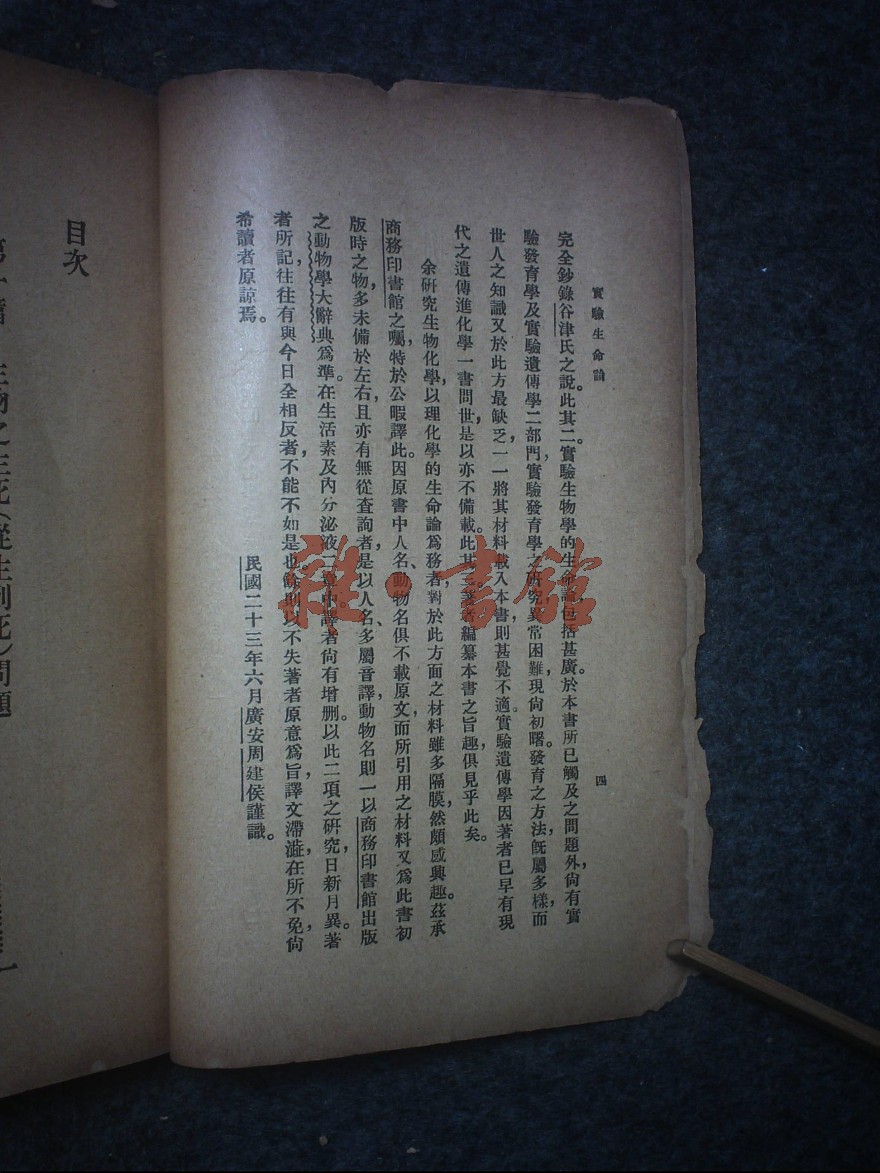 實驗生命論
四
完全鈔錄谷津氏之說。此其二。實驗生物學的生命論，包括甚廣。於本書所已觸及之問題外，尙有實
驗發育學及實驗遺傳學二部門，實驗發育學之硏究異常困難，現尙初曙。發育之方法，旣屬多樣，而
世人之知識又於此方最缺乏，一一將其材料載入本書，則甚覺不適。實驗遺傳學因著者已早有現
代之遺傳進化學一書問世，是以亦不備載。此其三。著者編纂本書之旨趣，俱見乎此矣。
余硏究生物化學，以理化學的生命論爲務者，對於此方面之材料雖多隔膜，然頗感興趣。茲承
商務印書館之囑，特於公暇譯此。因原書中人名、動物名俱不載原文，而所引用之材料又爲此書初
版時之物，多未備於左右，且亦有無從査詢者，是以人名多屬音譯，動物名則一以商務印書館出版
之動物學大辭典爲準。在生活素及內分泌液二章中，譯者尙有增删。以此二項之硏究，日新月異。著
者所記，往往有與今日全相反者，不能不如是也。餘則以不失著者原意爲旨，譯文滯澁，在所不免，尙
希讀者原諒焉。
民國二十三年六月廣安周建侯謹識。
目次
生物之生死（從生到死）問題
雜·書館